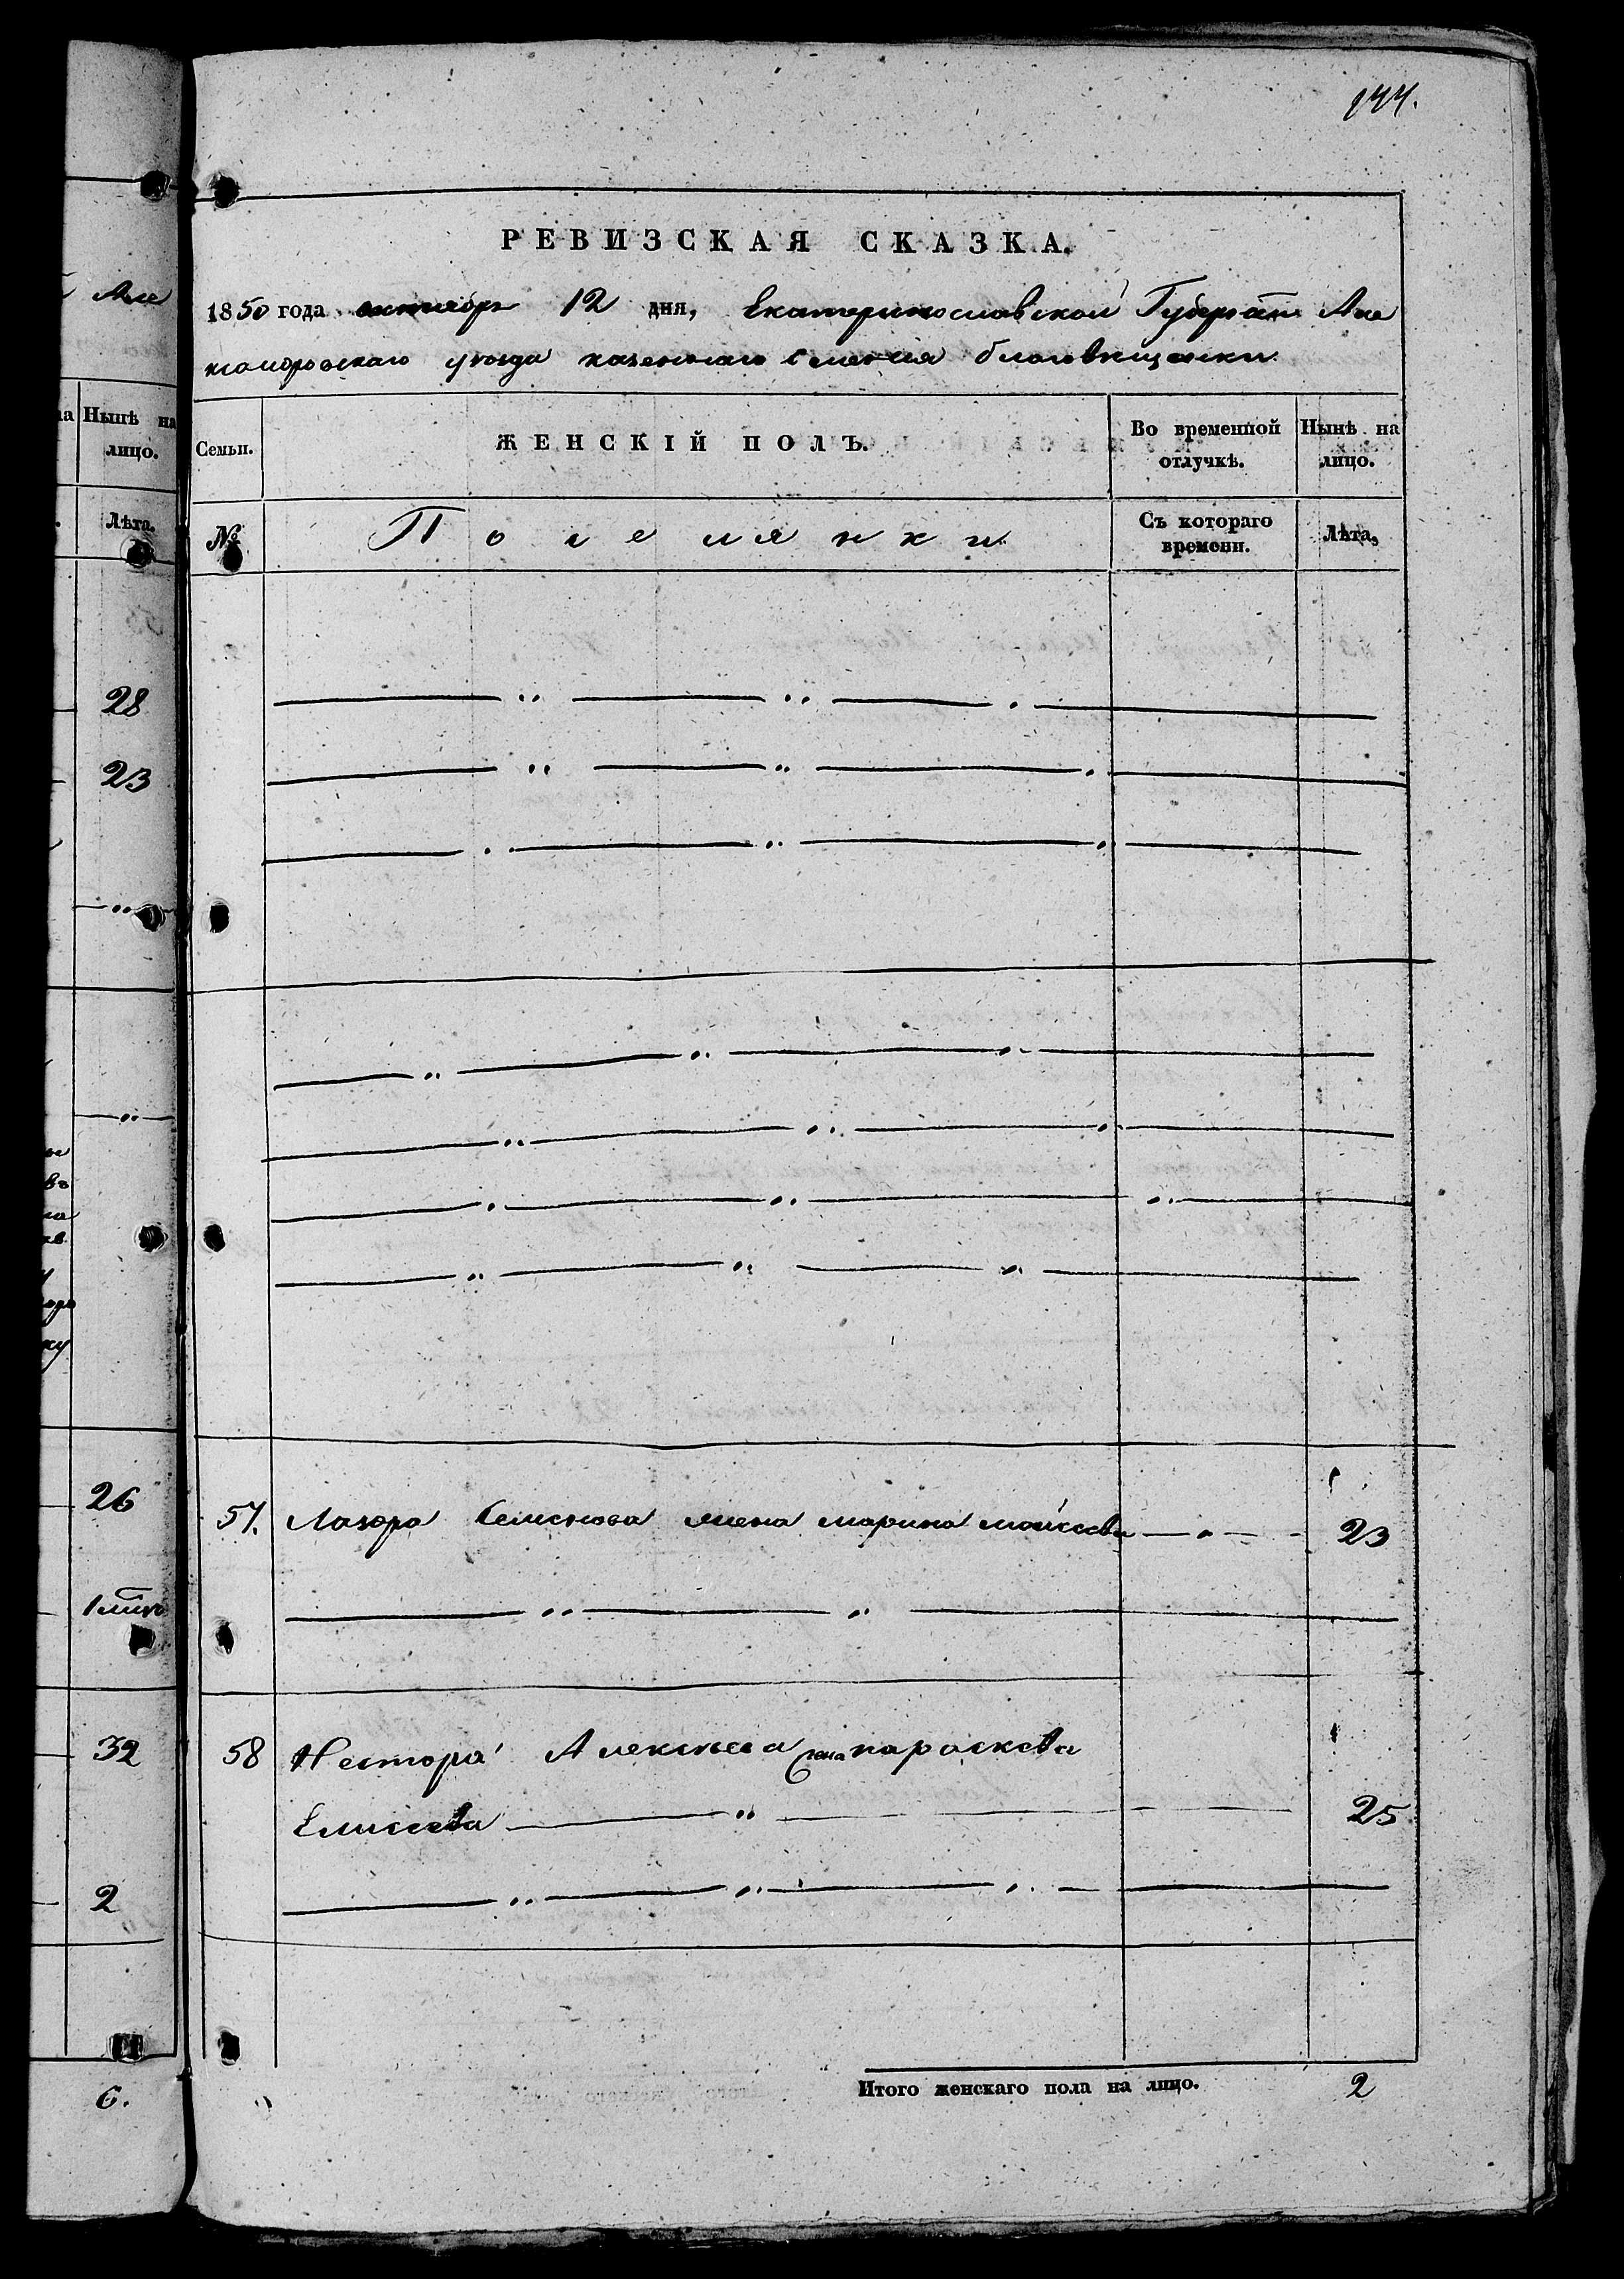 Але
Нынѣ на
лицо.
Лѣта.
28
23
26
32
2
6.
144.
РЕВИЗСКАЯ СКАЗКА.
1850 года октября 12 дня, Екатеринославской Губернiи Але
ксандровскаго уѣзда казеннаго Селенiя благовѣщенки
Семьи.
ЖЕНСКІЙ ПОЛЪ.
Во временной отлучкѣ.
Нынѣ на лицо.
№
Поселянки
Съ котораго времени.
Лѣта.
57. Лазора Семенова жена марина моисеева 23
58 Нестора Алексѣева жена параскева
Елисеева 25
Итого женскаго пола на лицо. 2